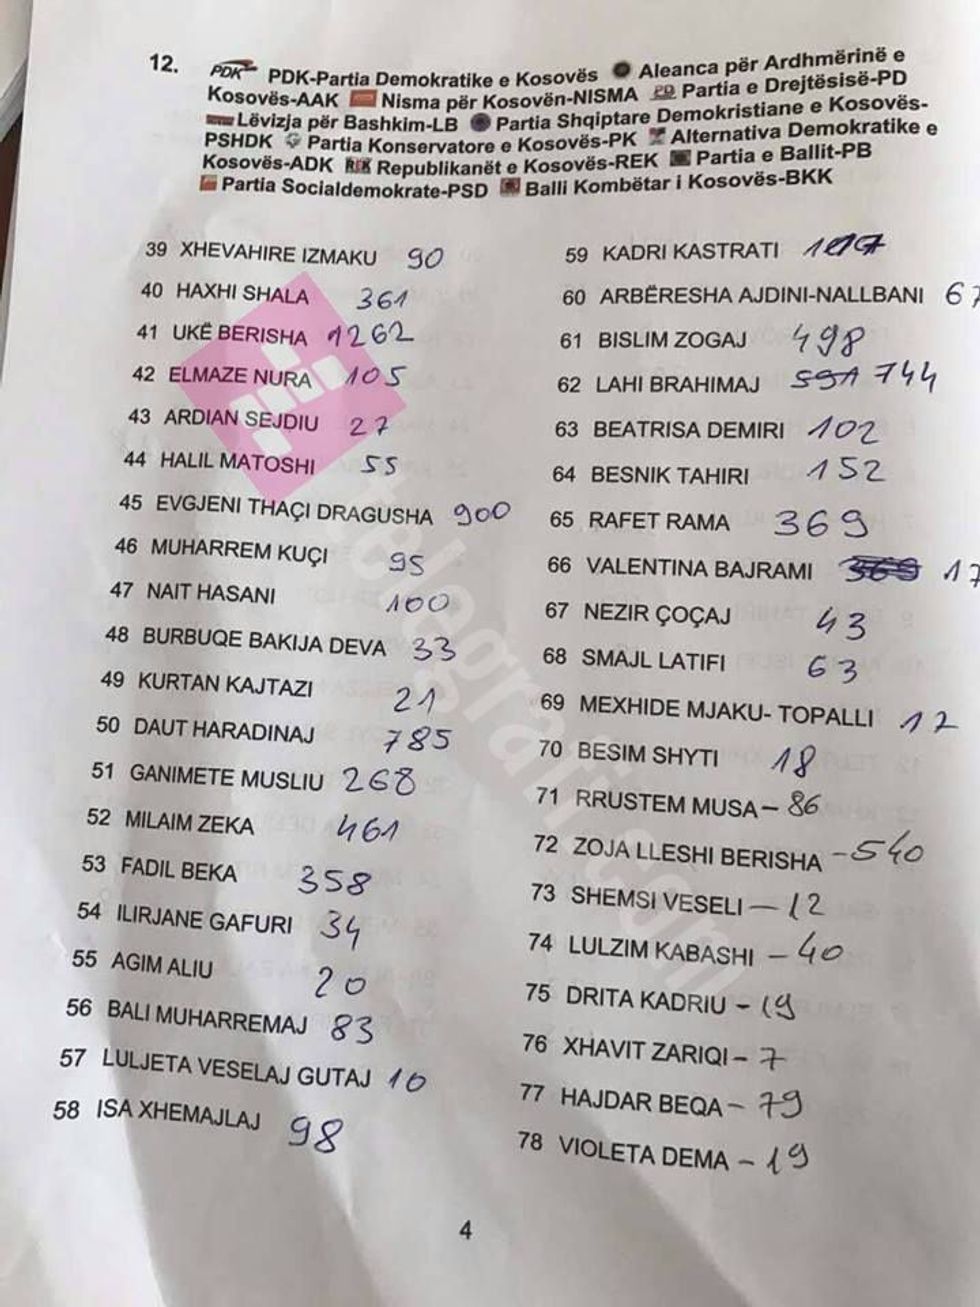 12. PDK PDK-Partia Demokratike e Kosovës Aleanca për Ardhmërinë e
Kosovës-AAK Nisma për Kosovën-NISMA PD Partia e Drejtësisë-PD
Lëvizja për Bashkim-LB Partia Shqiptare Demokristiane e Kosovës-
PSHDK Partia Konservatore e Kosovës-PK Alternativa Demokratike e
Kosovës-ADK REK Republikanët e Kosovës-REK Partia e Ballit-PB
Partia Socialdemokrate-PSD Balli Kombëtar i Kosovës-BKK
39 XHEVAHIRE IZMAKU 90
40 HAXHI SHALA 361
41 UKË BERISHA 1262
42 ELMAZE NURA 105
43 ARDIAN SEJDIU 27
44 HALIL MATOSHI 55
45 EVGJENI THAÇI DRAGUSHA 900
46 MUHARREM KUÇI 95
47 NAIT HASANI 100
48 BURBUQE BAKIJA DEVA 33
49 KURTAN KAJTAZI 21
50 DAUT HARADINAJ 785
51 GANIMETE MUSLIU 268
52 MILAIM ZEKA 461
53 FADIL BEKA 358
54 ILIRJANE GAFURI 34
55 AGIM ALIU 20
56 BALI MUHARREMAJ 83
57 LULJETA VESELAJ GUTAJ 10
58 ISA XHEMAJLAJ 98
59 KADRI KASTRATI
60 ARBËRESHA AJDINI-NALLBANI 67
61 BISLIM ZOGAJ 498
62 LAHI BRAHIMAJ 591 744
63 BEATRISA DEMIRI 102
64 BESNIK TAHIRI 152
65 RAFET RAMA 369
66 VALENTINA BAJRAMI 369 17
67 NEZIR ÇOÇAJ 43
68 SMAJL LATIFI 63
69 MEXHIDE MJAKU- TOPALLI 12
70 BESIM SHYTI 18
71 RRUSTEM MUSA – 86
72 ZOJA LLESHI BERISHA – 540
73 SHEMSI VESELI – 12
74 LULZIM KABASHI – 40
75 DRITA KADRIU – 19
76 XHAVIT ZARIQI – 7
77 HAJDAR BEQA – 79
78 VIOLETA DEMA – 19
4
telegrafi.com